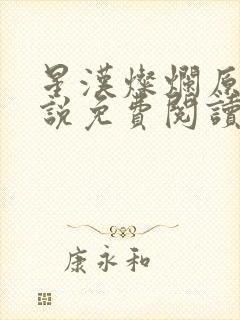 星漢燦爛原
說免費閱讀
康永和